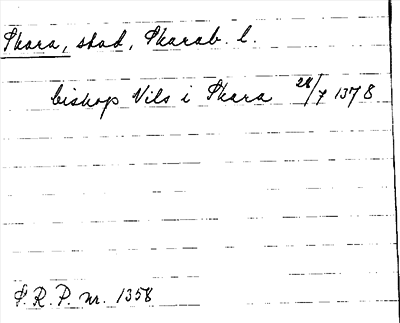 Skara, stad, Skarab. l.
biskop Nils i Skara 28/7 1378
S.R.P. nr. 1358